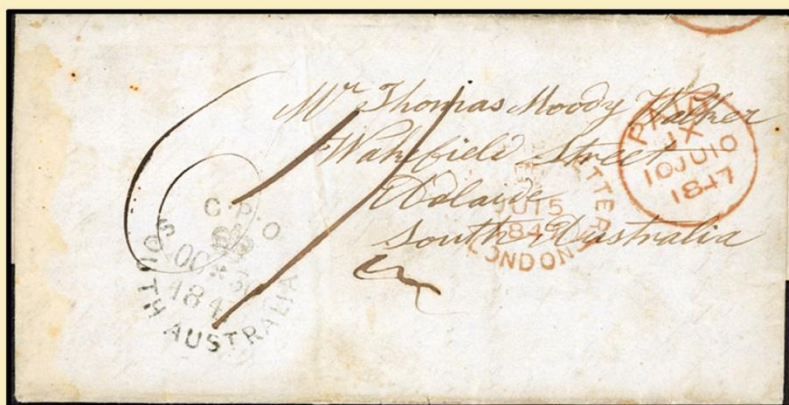 Mr Thomas Moody Walker
Wakefield Street
Adelaide
South Australia
PAID
JX
10JU10
1847
LETTER
JU15
184
LONDON
G.P.O
OC 30
184
SOUTH AUSTRALIA